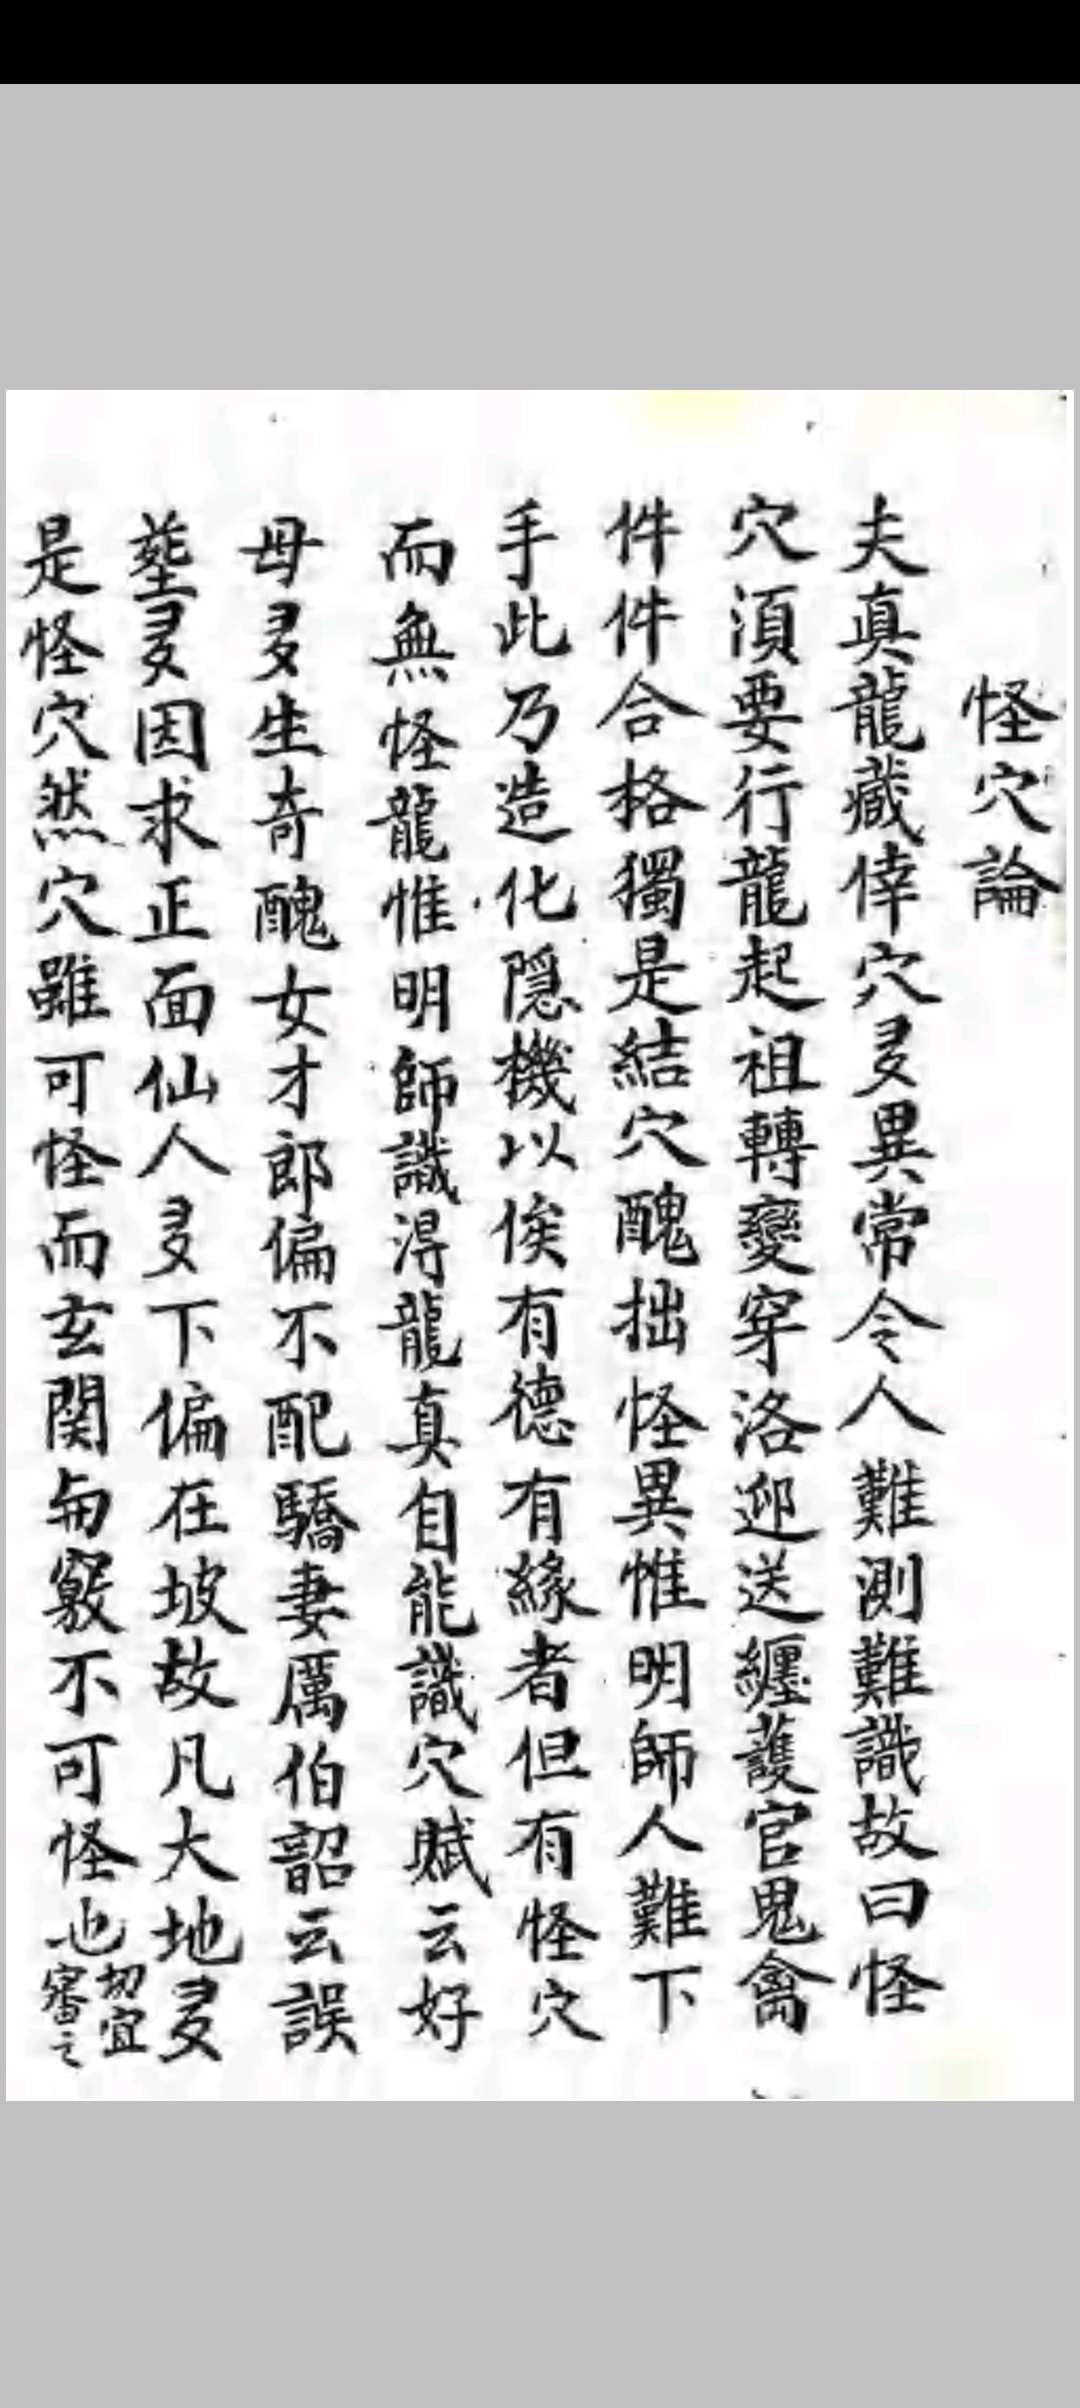 怪穴論
夫真龍藏倖穴多異常令人難測難識故曰怪
穴須要行龍起祖轉變穿洛迎送纏護官鬼禽
件件合格獨是結穴醜拙怪異惟明師人難下
手此乃造化隱機以俟有德有緣者但有怪穴
而無怪龍惟明師識得龍真自能識穴賦云好
母多生奇醜女才郎偏不配驕妻厲伯韶云誤
塟多因求正面仙人多下偏在坡故凡大地多
是怪穴然穴雖可怪而玄関与竅不可怪也切宜審之